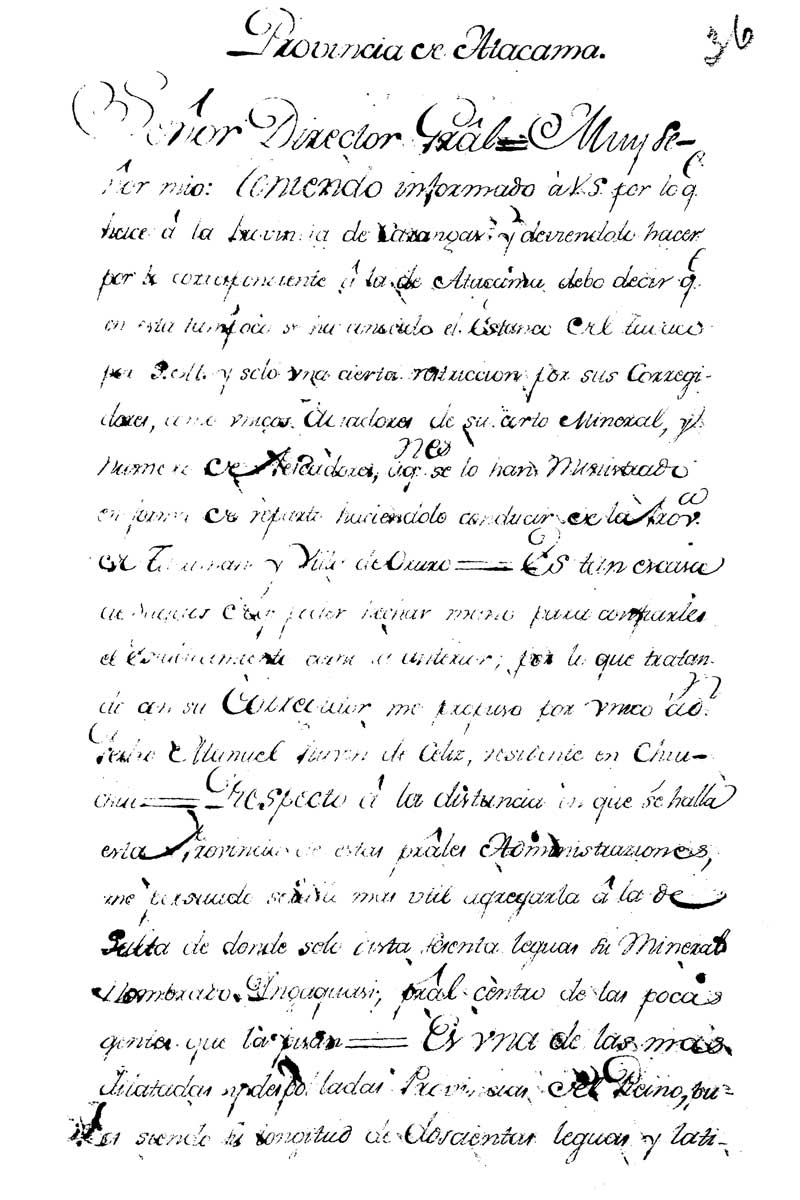 Provincia de Atacama.
36
Señor Director Grâl = Muy Se-
ñor mio: Teniendo informado à V.S. por lo q.e
hace â la Provincia de Carangas; y deviendolo hacer
por lo correspondiente â la de Atacama debo decir q.e
en esta tampoco se ha conocido el Estanco del Tavaco
por S.M. y solo vna cierta reduccion por sus Corregi-
dores, como vnicos Aviadores de su corto Mineral, y
numero de Mercadores, aq.nes se lo han Ministrado
en forma de reparto haciendolo conducir de la Prov.a
de Tucuman y Villa de Oruro = Es tan escasa
de sugetos de q. poder hechar mano para confiarles
el Establecimiento como la anterior; por lo que tratan-
do con su Corregidor me propuso por vnico â D.n
Pedro Manuel de Celiz, residente en Chiu-
chiu = Respecto â la distancia en que se halla
esta Provincia de estas prâles Administraziones,
me persuado seria mas vtil agregarla â la de
Salta de donde solo dista sesenta leguas su Mineral
Nombrado Ingaguasi, prâl centro de las pocas
gentes que la pisan = Es vna de las mas
dilatadas y despobladas Provincias del Reino, pu=
es siendo su longitud de doscientas leguas y lati-